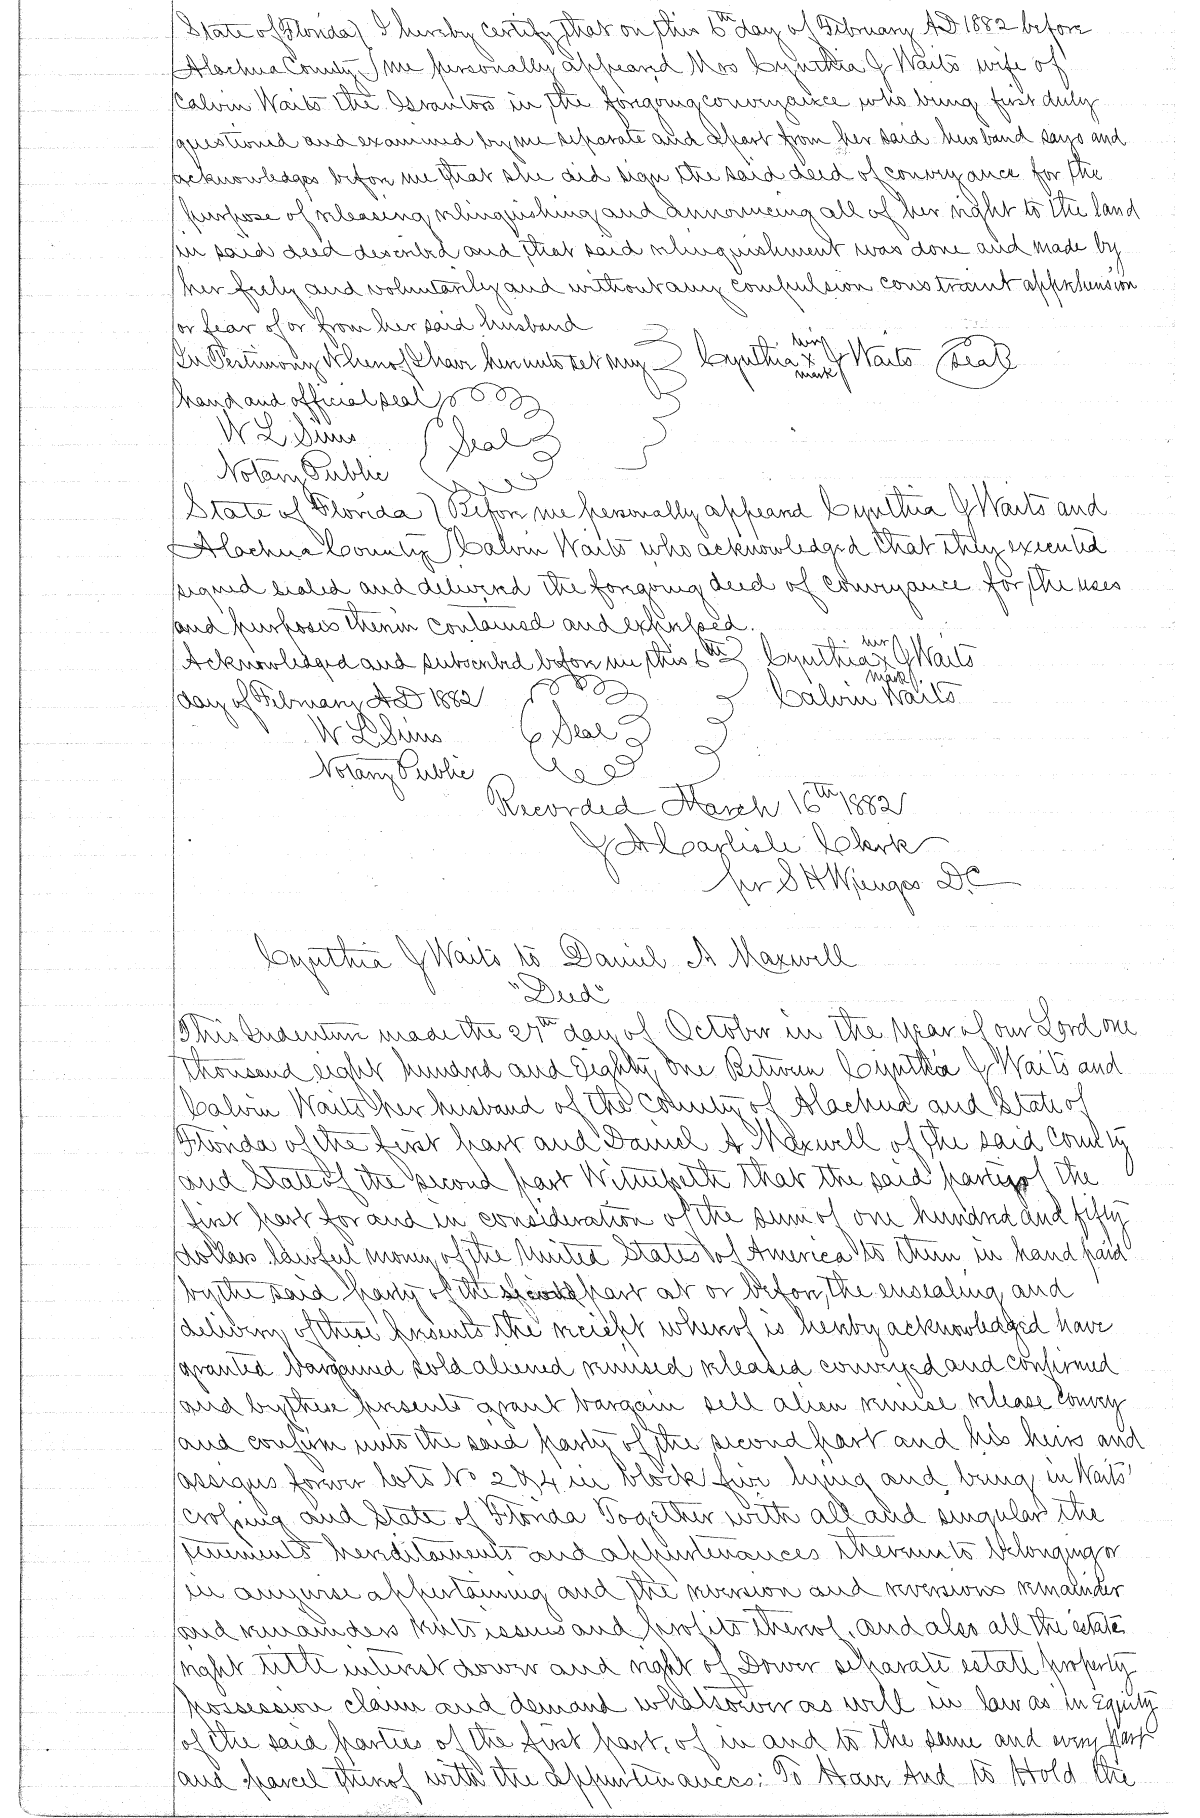 State of Florida } I hereby certify that on this 6th day of February AD 1882 before
Alachua County } me personally appeared Mrs Cynthia J Waits wife of
Calvin Waits the Grantors in the foregoing conveyance who being first duly
questioned and examined by me separate and apart from her said husband says and
acknowledges before me that she did sign the said deed of conveyance for the
purpose of releasing relinquishing and announcing all of her right to the land
in said deed described and that said relinquishment was done and made by
her freely and voluntarily and without any compulsion constraint apprehension
or fear of or from her said husband
In Testimony Whereof I have hereunto set my } Cynthia her x mark J Waits (Seal)
hand and official seal
W L Sims (Seal)
Notary Public
State of Florida } Before me personally appeared Cynthia J Waits and
Alachua County } Calvin Waits who acknowledged that they executed
signed sealed and delivered the foregoing deed of conveyance for the uses
and purposes therein contained and expressed.
Acknowledged and subscribed before me this 6th } Cynthia her x mark J Waits
day of February AD 1882 Calvin Waits
W L Sims (Seal)
Notary Public
Recorded March 16th 1882
J A Carlisle Clerk
per S H Wienges D.C
Cynthia J Waits to Daniel A Maxwell
"Deed"
This Indenture made the 27th day of October in the year of our Lord one
thousand eight hundred and Eighty One Between Cynthia J Waits and
Calvin Waits her husband of the County of Alachua and State of
Florida of the first part and Daniel A Maxwell of the said County
and State of the second part Witnesseth that the said parties of the
first part for and in consideration of the sum of one hundred and fifty
dollars lawful money of the United States of America to them in hand paid
by the said party of the second part at or before the ensealing and
delivery of these presents the reciept whereof is hereby acknowledged have
granted bargained sold aliened remised released conveyed and confirmed
and by these presents grant bargain sell alien remise release convey
and confirm unto the said party of the second part and his heirs and
assigns forever lots No 2 & 4 in block five lying and being in Waits'
Crossing and State of Florida Together with all and singular the
tenements hereditaments and appurtenances thereunto belonging or
in anywise appertaining and the reversion and reversions remainder
and remainders rents issues and profits thereof, and also all the estate
right title interest dower and right of Dower separate estate property
possession claim and demand whatsoever as well in law as in Equity
of the said parties of the first part, of in and to the same and every part
and parcel thereof with the appurtenances: To Have And to Hold the